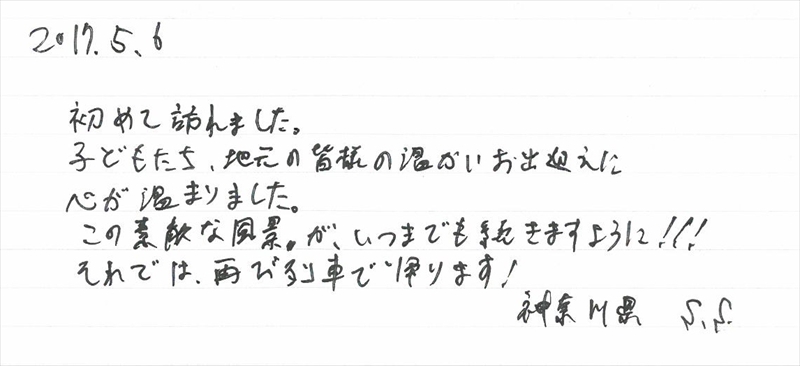 2017.5.6
初めて訪れました。
子どもたち、地元の皆様の温かいお出迎えに
心が温まりました。
この素敵な風景。が、いつまでも続きますように!!!
それでは、再び列車で帰ります!
神奈川県 S.S.